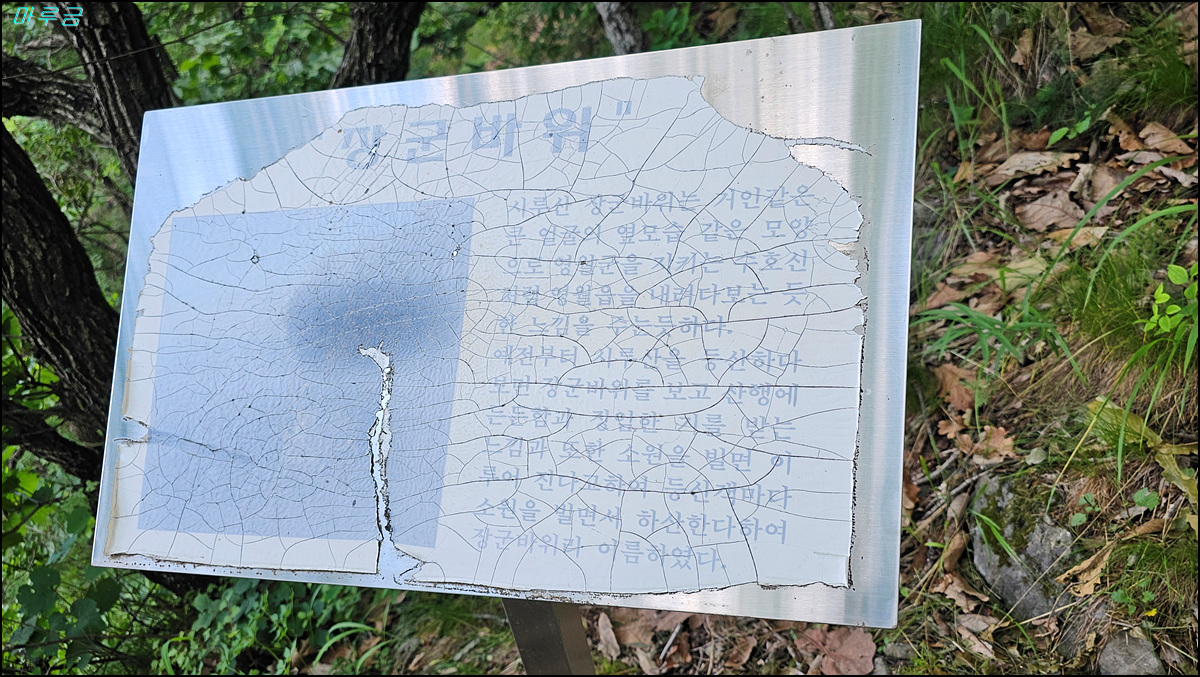 마루금
장군바위"
시루산 장군바위는 거인같은
큰 얼굴의 옆모습 같은 모양
으로 영월군을 지키는 수호신
처럼 영월읍을 내려다보는 듯
한 느낌을 주는듯하다.
예전부터 시루산을 등산하다
보면 장군바위를 보고 산행에
든든함과 정일한 기를 받는
느낌과 또한 소원을 빌면 이
루어 진다고하여 등산객마다
소원을 빌면서 하산한다하여
장군바위라 이름하였다.